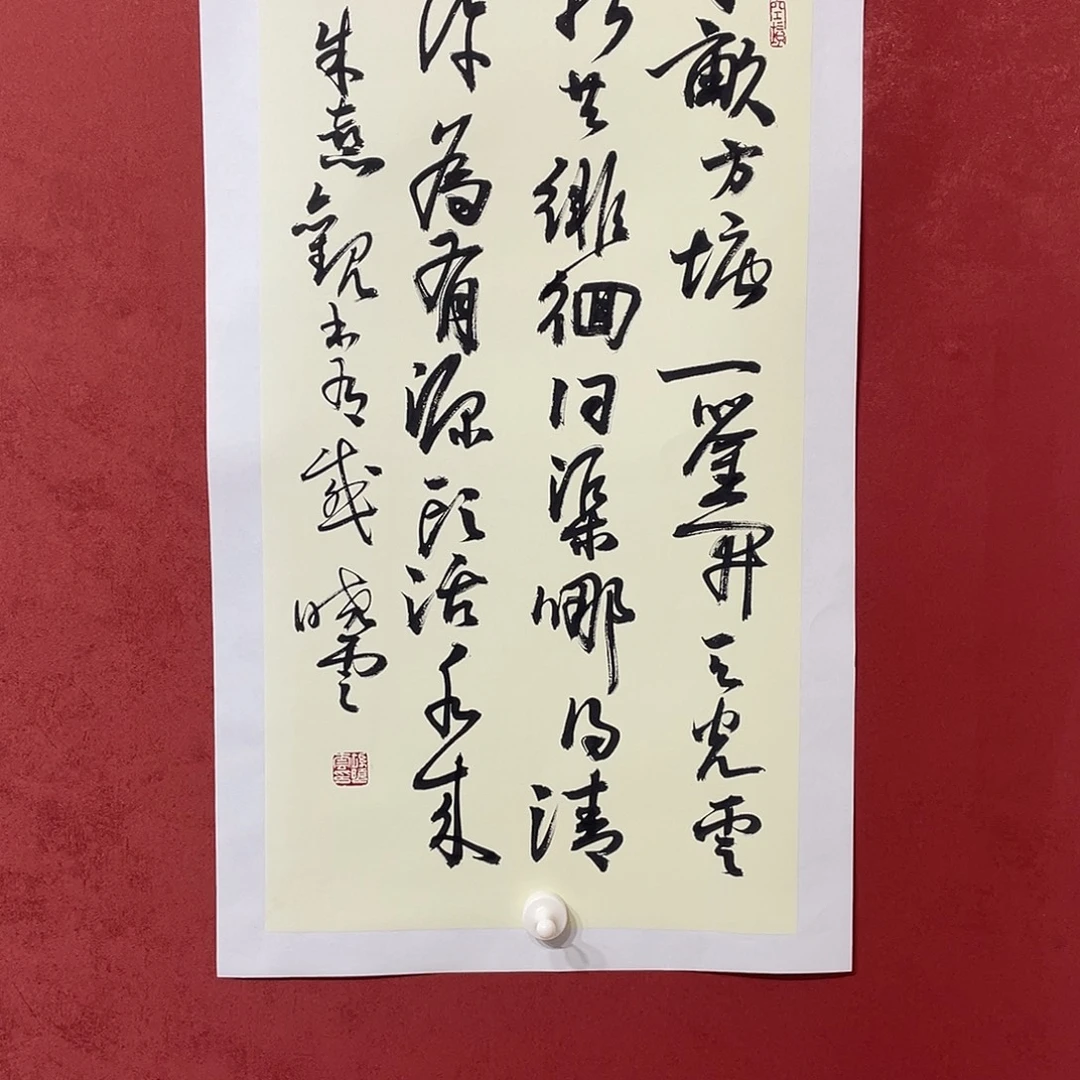 畝方塘一鑒開天光雲
共徘徊問渠哪得清
許為有源頭活水來
朱熹觀書有感 曉雲